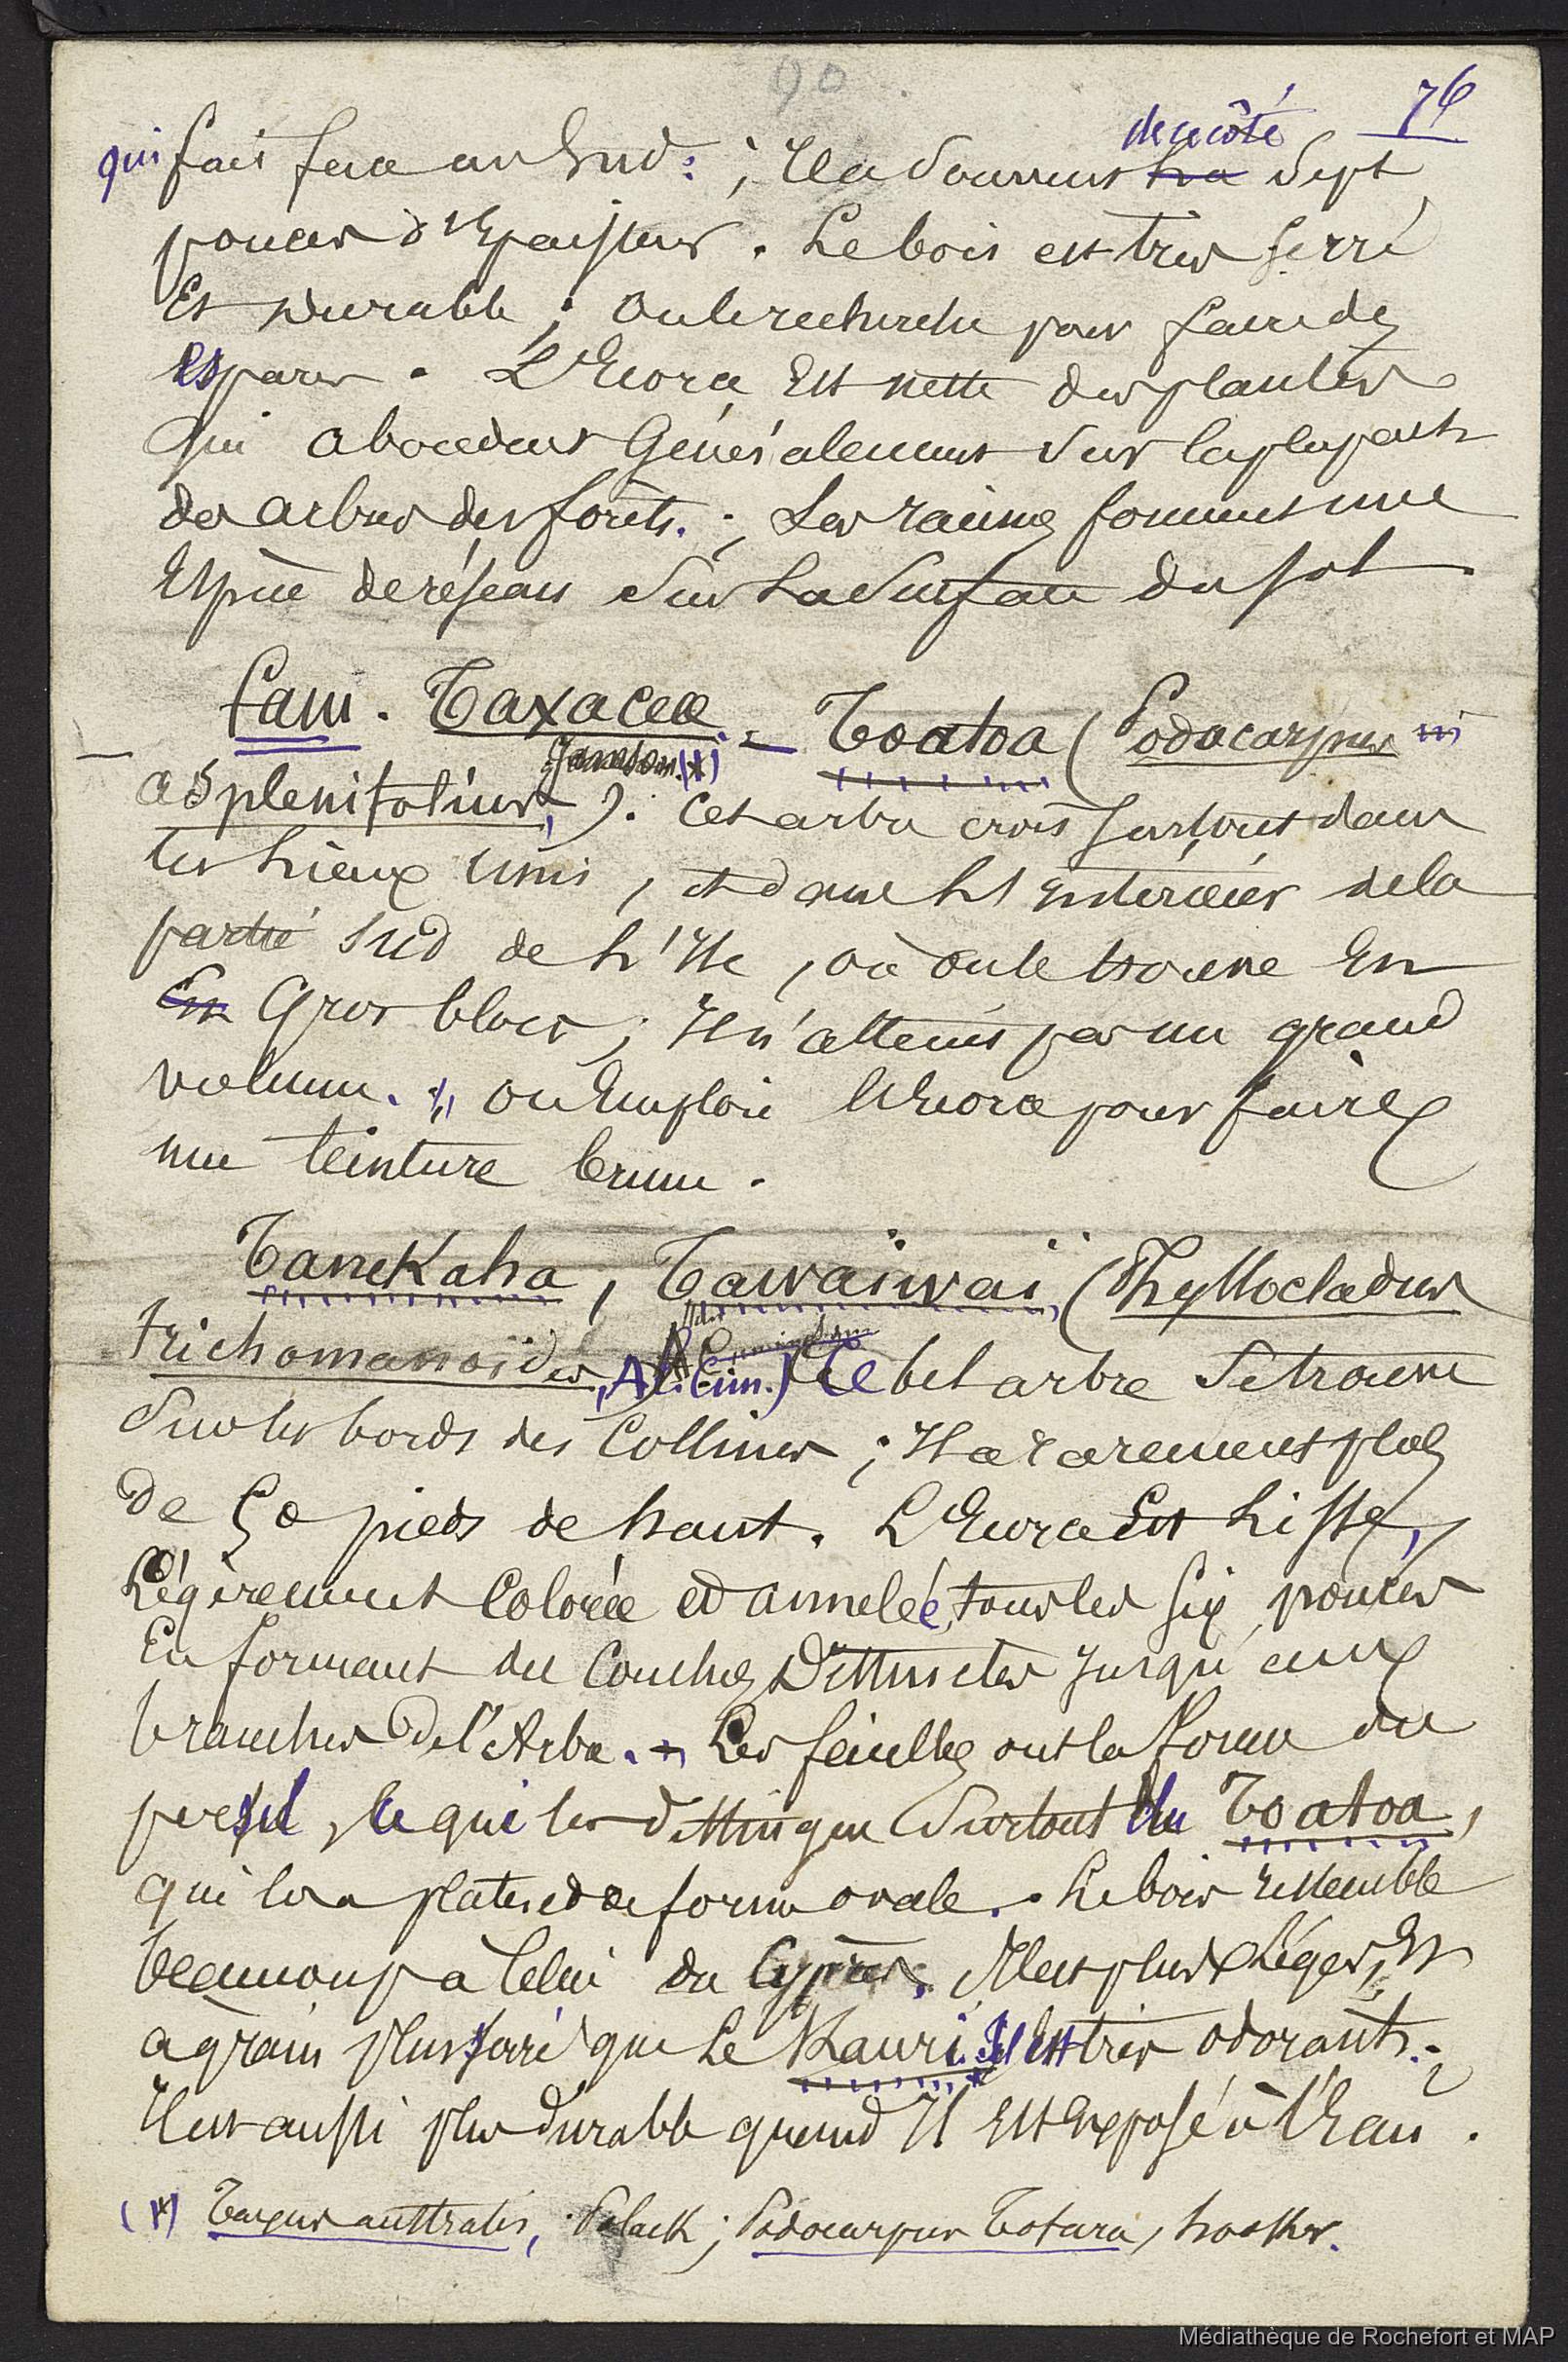 90
76
de ce côté
qui fait face au Sud ; Il a souvent la sept
pouces d'Epaisseur. Le bois est très serré
Et durable ; on le recherche pour faire des
espars. L'Ecorce Est nette des plantes
qui abondent Généralement sur la plupart
des arbres des forêts. ; Les racines forment une
Espèce de réseau sur La surface du sol.
fam. Taxaceæ. = Toatoa (Podocarpus
asplenifolius, ). Cet arbre crois surtout dans
les Lieux unis, et dans L'intérieur de la
partie sud de L'Ile, où on le trouve En
En Gros blocs ; Il n'atteint pas un grand
volume. ; on Emploie l'Ecorce pour faire
une teinture brune.
TaneKaha, Tawaiwai, (Phyllocladus
trichomanoides, Al. Cun.) Ce bel arbre se trouve
Sur les bords des Collines ; Il a rarement plus
de 50 pieds de haut. L'Ecorce Est Lisse,
Légèrement Colorée et annelée, tous les six pouces
En formant des Couches Distinctes jusqu'aux
branches de l'Arbre. - Les feuilles ont la forme du
persil, ce qui les distingue surtout du Toatoa,
qui les a plates et de forme ovale. Le bois ressemble
beaucoup à Celui du Cyprès. Il est plus Léger, Et
a grain plus serré que Le Kauri. Il Est très odorant. ;
Il est aussi plus durable quand Il Est Exposé à l'Eau.
(*) Taxus australis, Black ; Podocarpus Totara, hooker.
Médiathèque de Rochefort et MAP